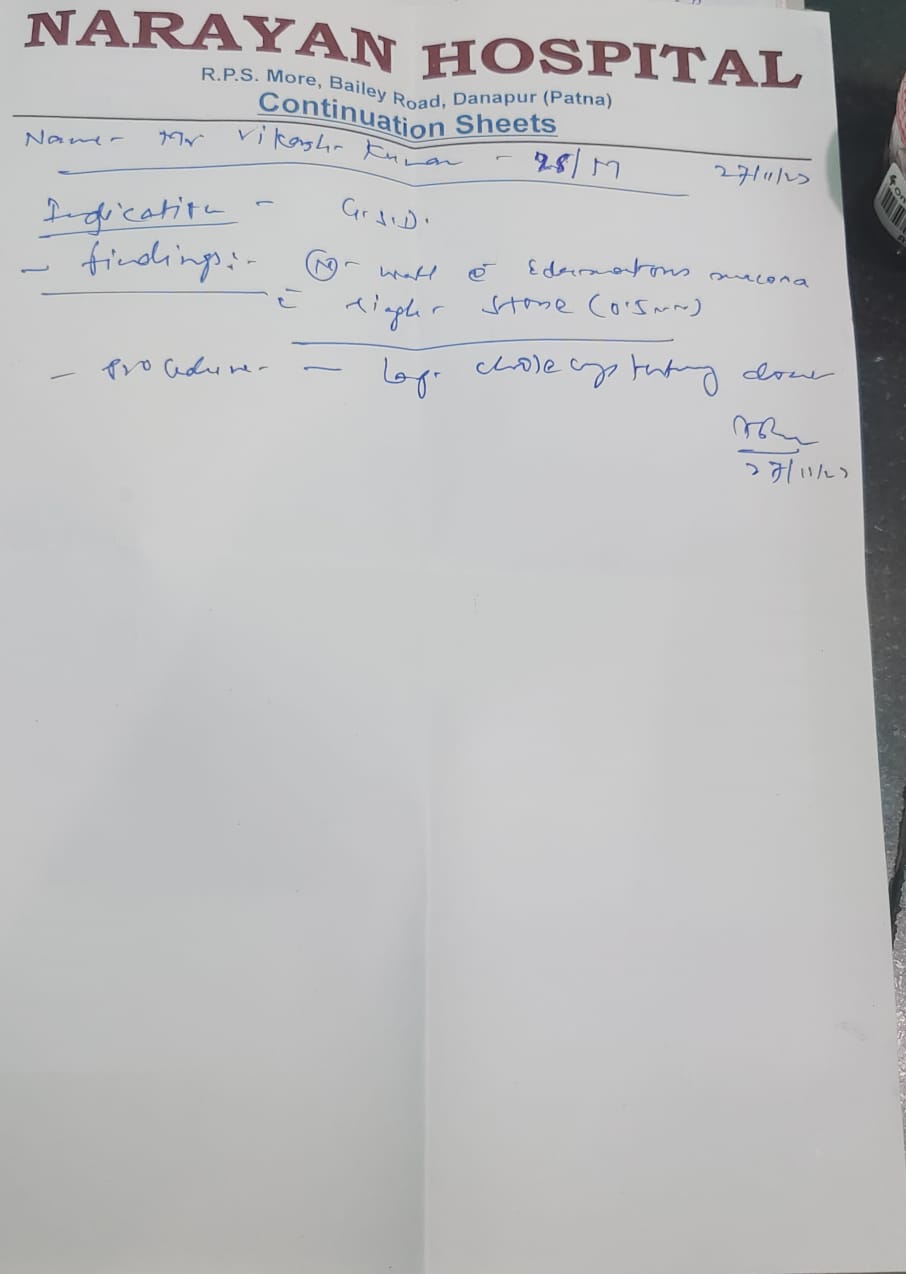 NARAYAN HOSPITAL
R.P.S. More, Bailey Road, Danapur (Patna)
Continuation Sheets
Name - Mr Vikash Kumar - 28/M 27/11/23
Indication - G.S.D.
- findings:- (N) - wall c̄ Edematous mucosa
c̄ single stone (0.5mm)
- Procedure - Lap. cholecystectomy done
27/11/23